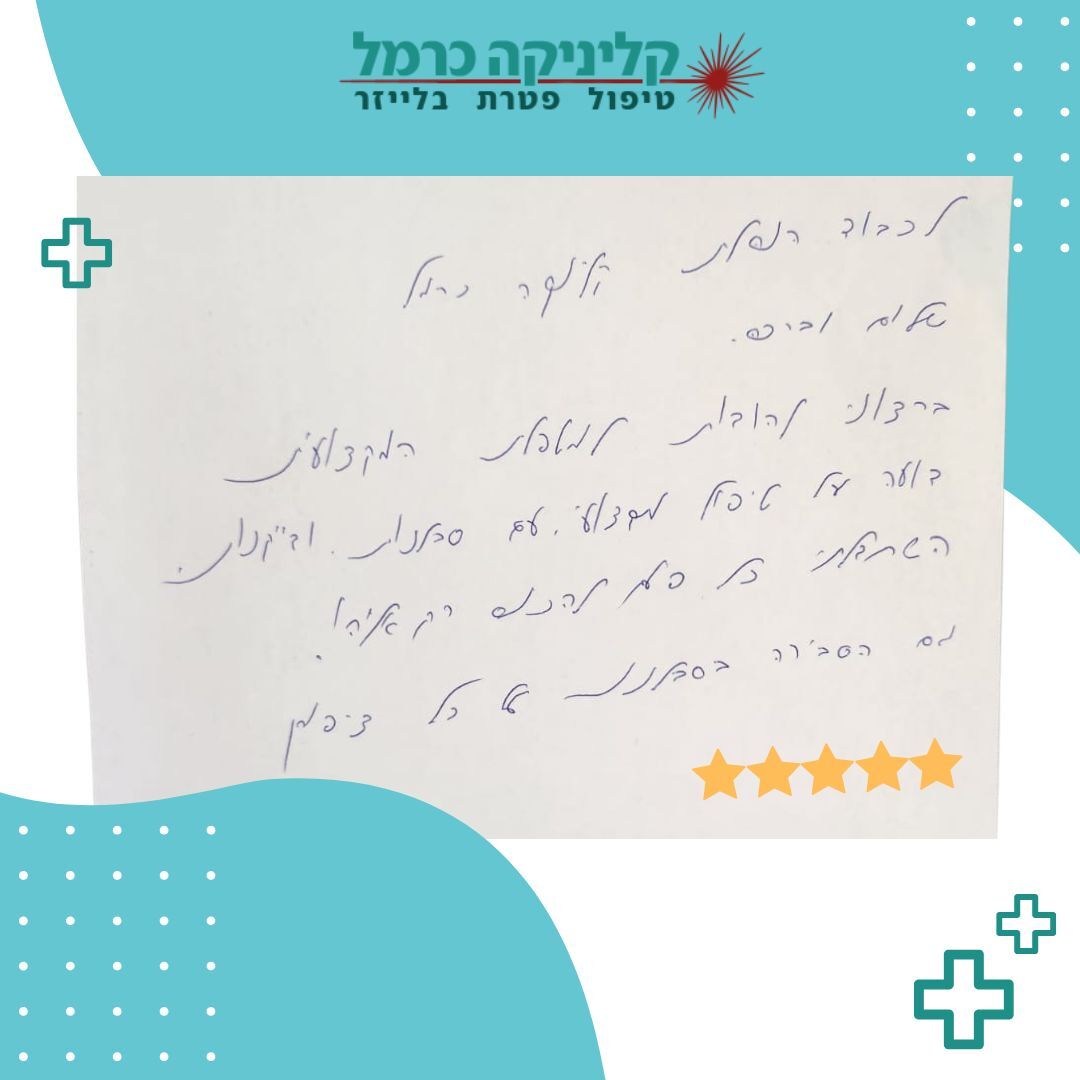 קליניקה כרמל
טיפול פטרת בלייזר
לכבוד הנהלת קליניקה כרמל
שלום וברכה.
ברצוני להודות למטפלת המקצועית
על טיפול מקצועי, עם סבלנות. ודייקנות.
השתדלתי כל פעם להכנס רק אליה!
גם הסבירה בסבלנות על כל